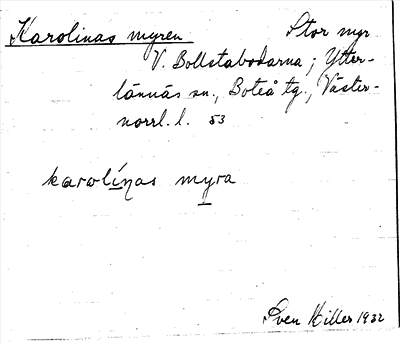 Karolinas myren Stor myr
V. Bollstabodarna; Ytter-
lännäs sn., Boteå tg., Väster-
norrl. l. 53
karolíŋas myra
Sven Hiller 1932